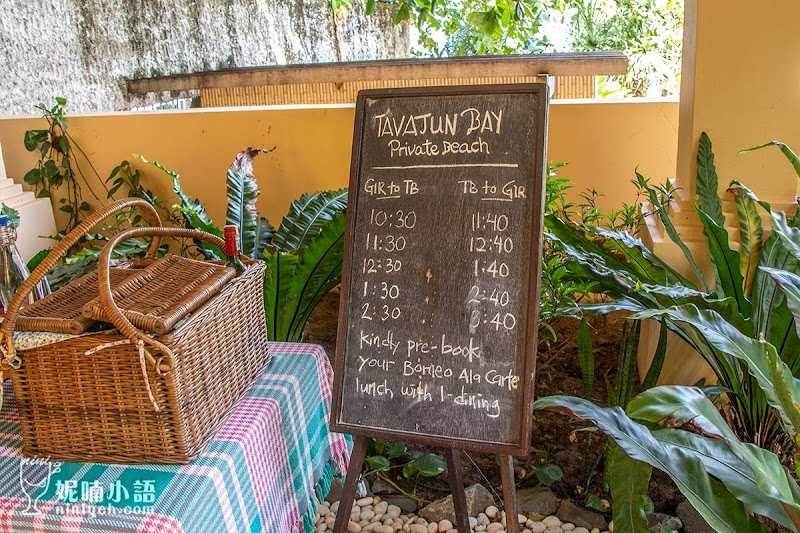 TAVAJUN BAY
Private Beach
GIR to TB TB to GIR
10:30 11:40
11:30 12:40
12:30 1:40
1:30 2:40
2:30 3:40
kindly pre-book
your Borneo Ala Carte
lunch with I-dining
妮喃小語
niniyeh.com